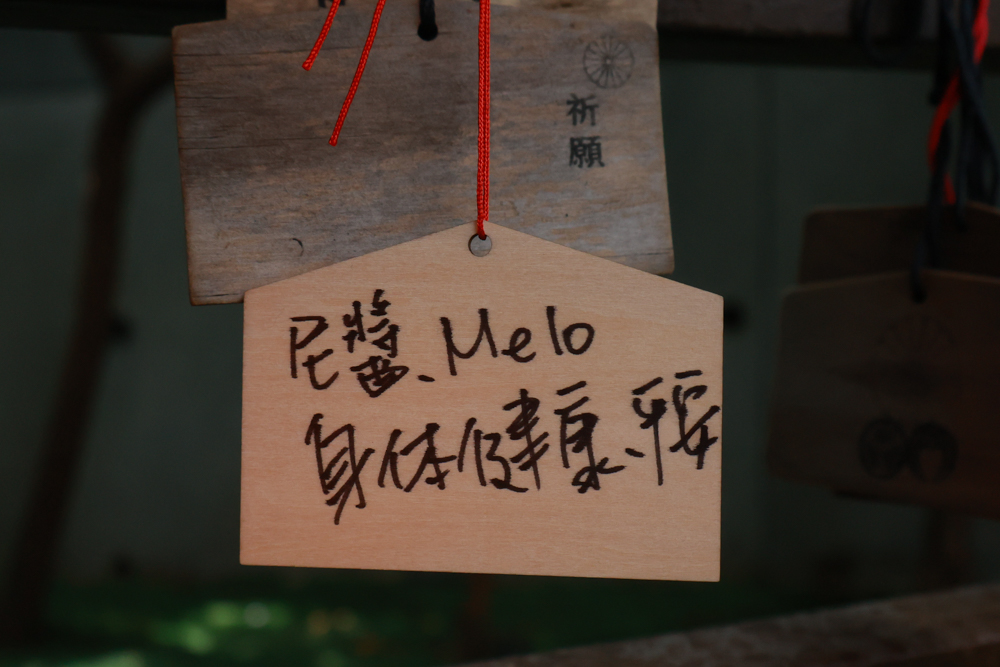 祈願
尼醬、Melo
身体健康、平安